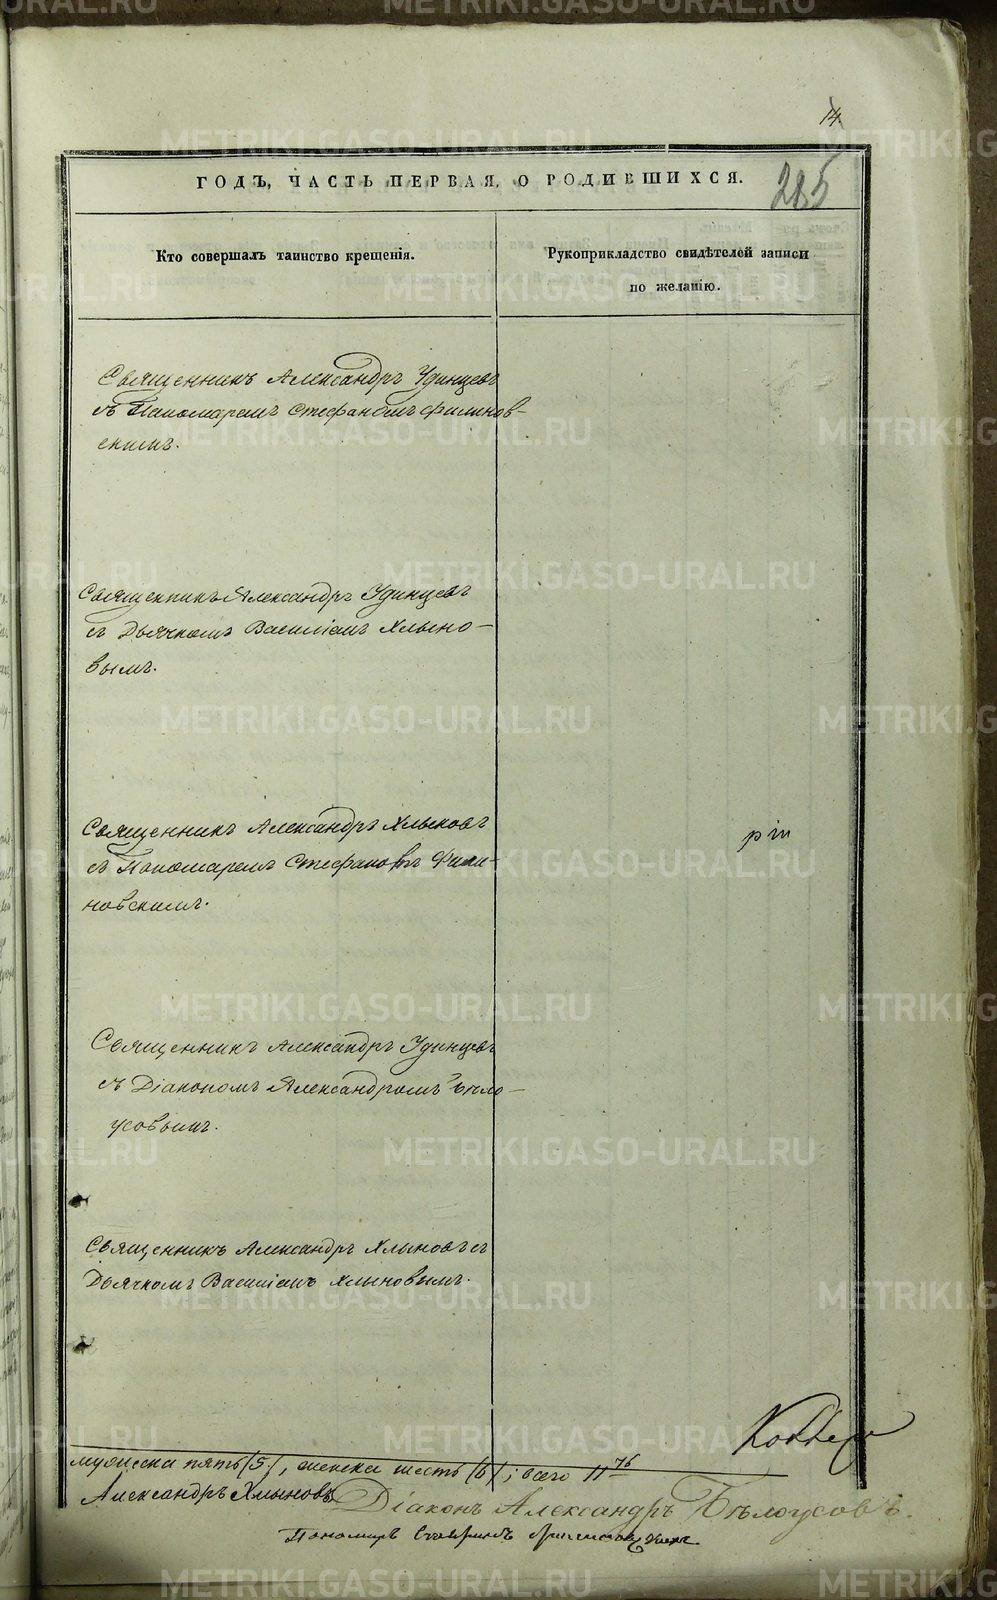 14.
ГОДЪ, ЧАСТЬ ПЕРВАЯ, О РОДИВШИХСЯ.
285
Кто совершалъ таинство крещенія.
Рукоприкладство свидѣтелей записи
по желанію.
Священникъ Александръ Удинцевъ
съ Пономаремъ Стефаномъ Филинов-
скимъ.
Священникъ Александръ Удинцевъ
съ Дьячкомъ Василіемъ Хлыно-
вымъ.
Священникъ Александръ Хлыновъ
съ Пономаремъ Стефаномъ Фили-
новскимъ.
Священникъ Александръ Удинцевъ
съ Діакономъ Александромъ Бѣло-
усовымъ.
Священникъ Александръ Хлыновъ съ
Дьячкомъ Василіемъ Хлыновымъ.
мужеска пять (5), женска шесть (6); всего 11
Александръ Хлыновъ Діаконъ Александръ Бѣлоусовъ.
Пономарь
METRIKI.GASO-URAL.RU